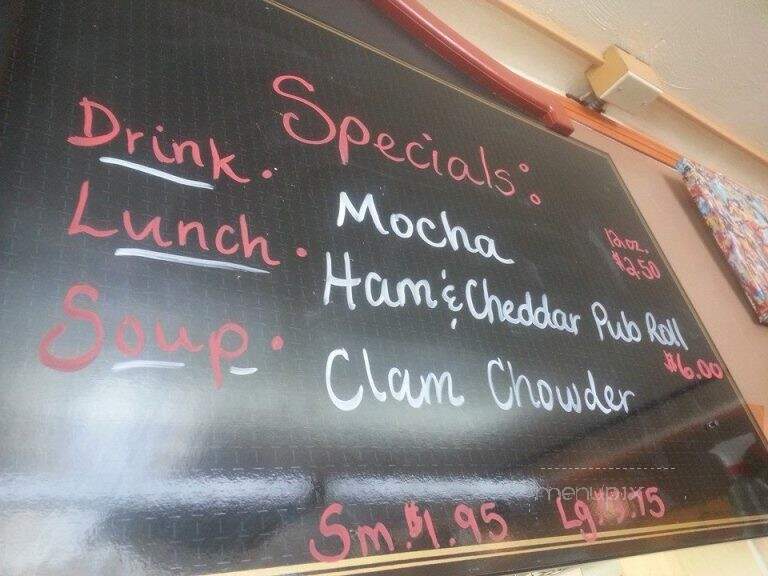 Specials:
Drink. Mocha 12 oz. $2.50
Lunch. Ham & Cheddar Pub Roll $6.00
Soup. Clam Chowder
Sm. $1.95 Lg.
menupix